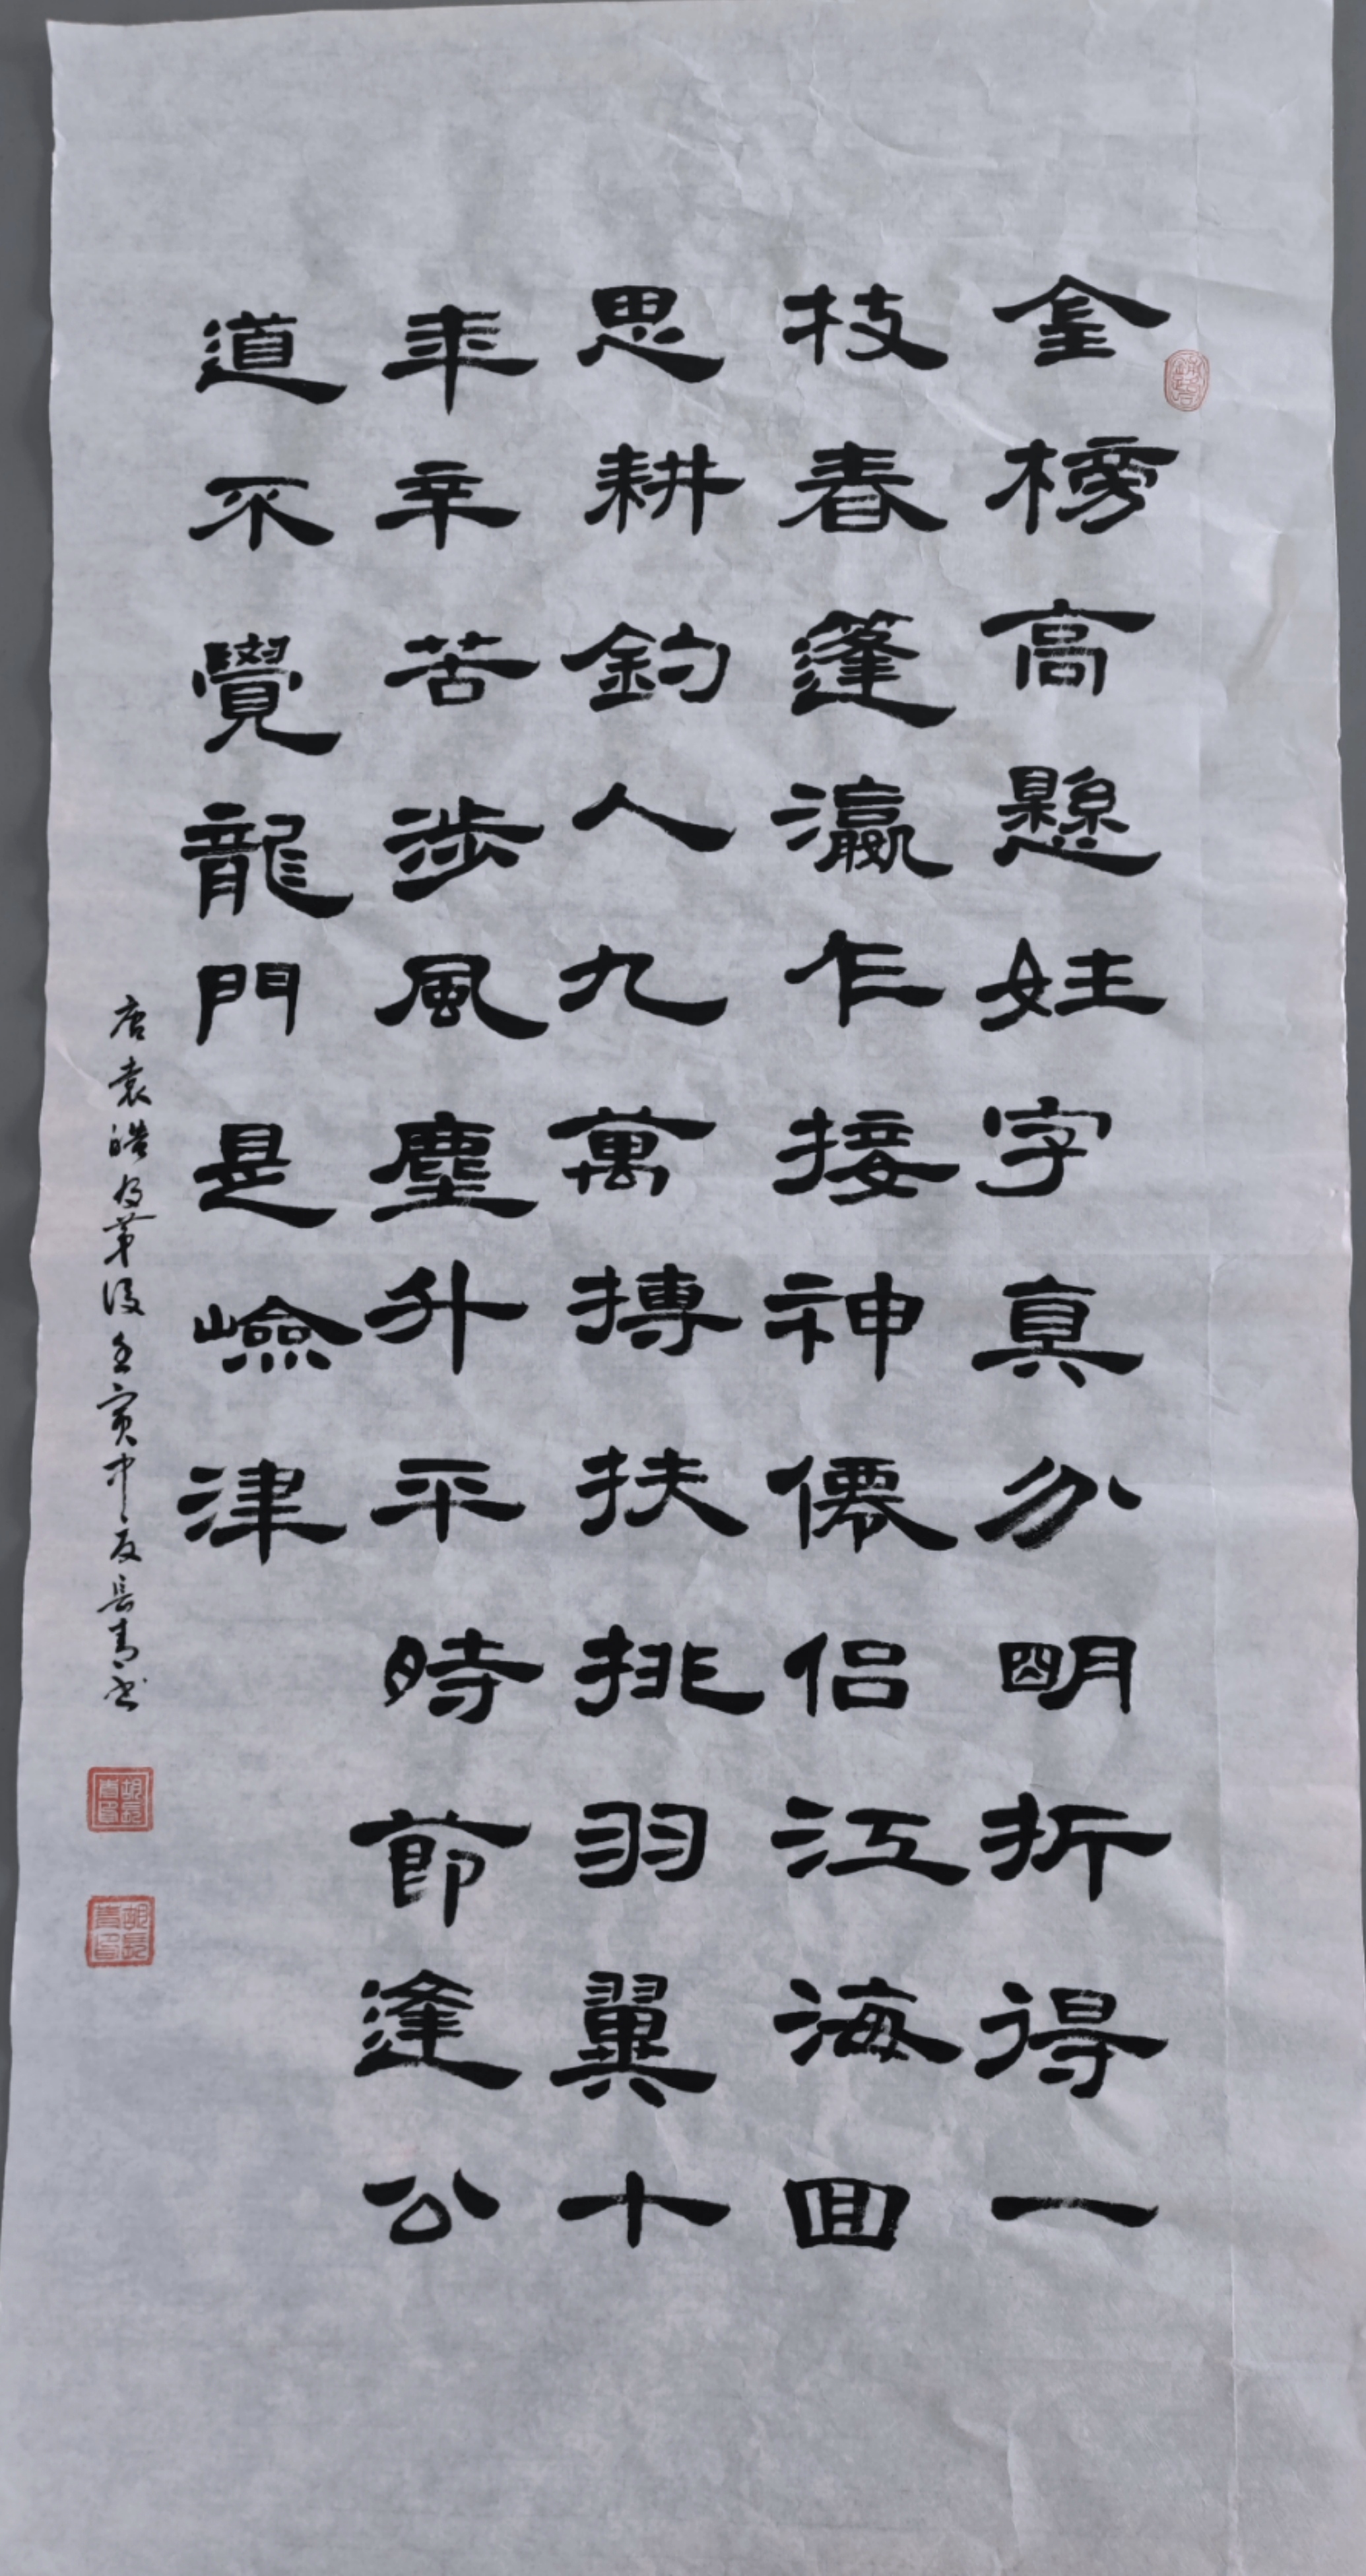 金榜高懸姓字真分明折得一
技春篷瀛乍接神僊侶江海囬
思耕釣人九萬摶扶挑羽翼十
年辛苦涉風塵升平時節逢公
道不覺龍門是嶮津
唐袁皓及第後壬寅中夏長青書
胡長青印
胡長青印